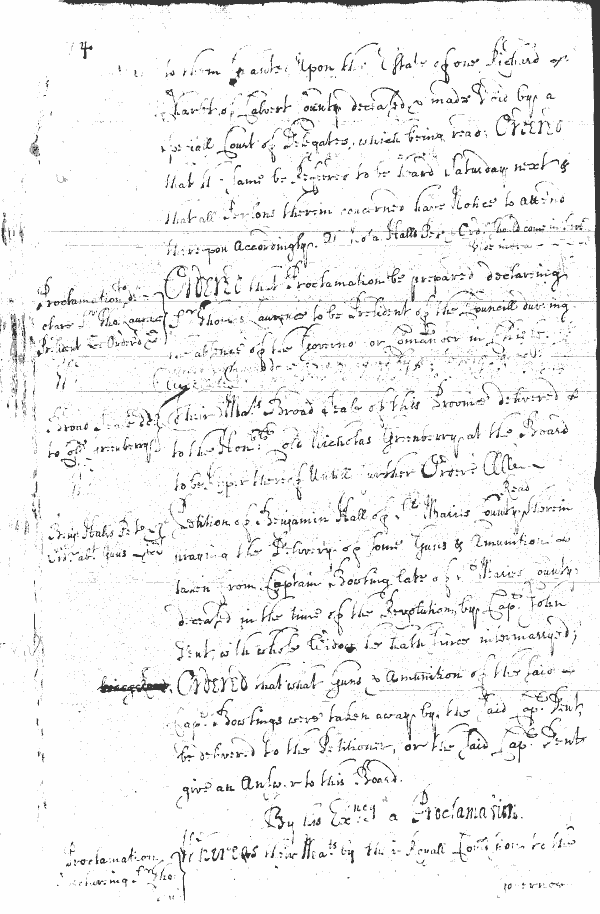 4
to them upon the Estate of one Richard
of Calvert County deceased & made Void by a
speciall Court of Delegates, which being read, Ordered
that the same be Referred to be heard Saturday next &
that all Persons therein concerned have Notice to attend
thereupon Accordingly.
Ordered that Proclamation be prepared declaring
Sr Thomas Laurence to be President of the Councill during
the absence of the Governor or Comander in Chiefe
Proclamation to de=
clare Sr Tho Laurence
President &c Ordered
Their Mats Broad Seale of this Province delivered
to the Honble Coll Nicholas Greenberry at the Board
to be Keeper thereof Untill further Order
Broad Seale
to Coll Greenberry
Read
Petition of Benjamin Hall of St Maries County therein
praying the Delivery of some Guns & Amunition
taken from Captain Bowling late of St Maries County
deceased in the time of the Revolution, by Capt John
Dent, with whose Widow he hath since intermarryed;
Benj Halls Peti
abt Guns
Ordered that what Guns & Amunition of the said
Capt Bowlings were taken away by the said Capt Dent,
be delivered to the Petitioner, or the said Capt Dent
give an Answer to this Board.
By his Excncy a Proclamation.
Whereas their Mats by their Royall to the
Proclamation
declaring Sr Tho
Governor